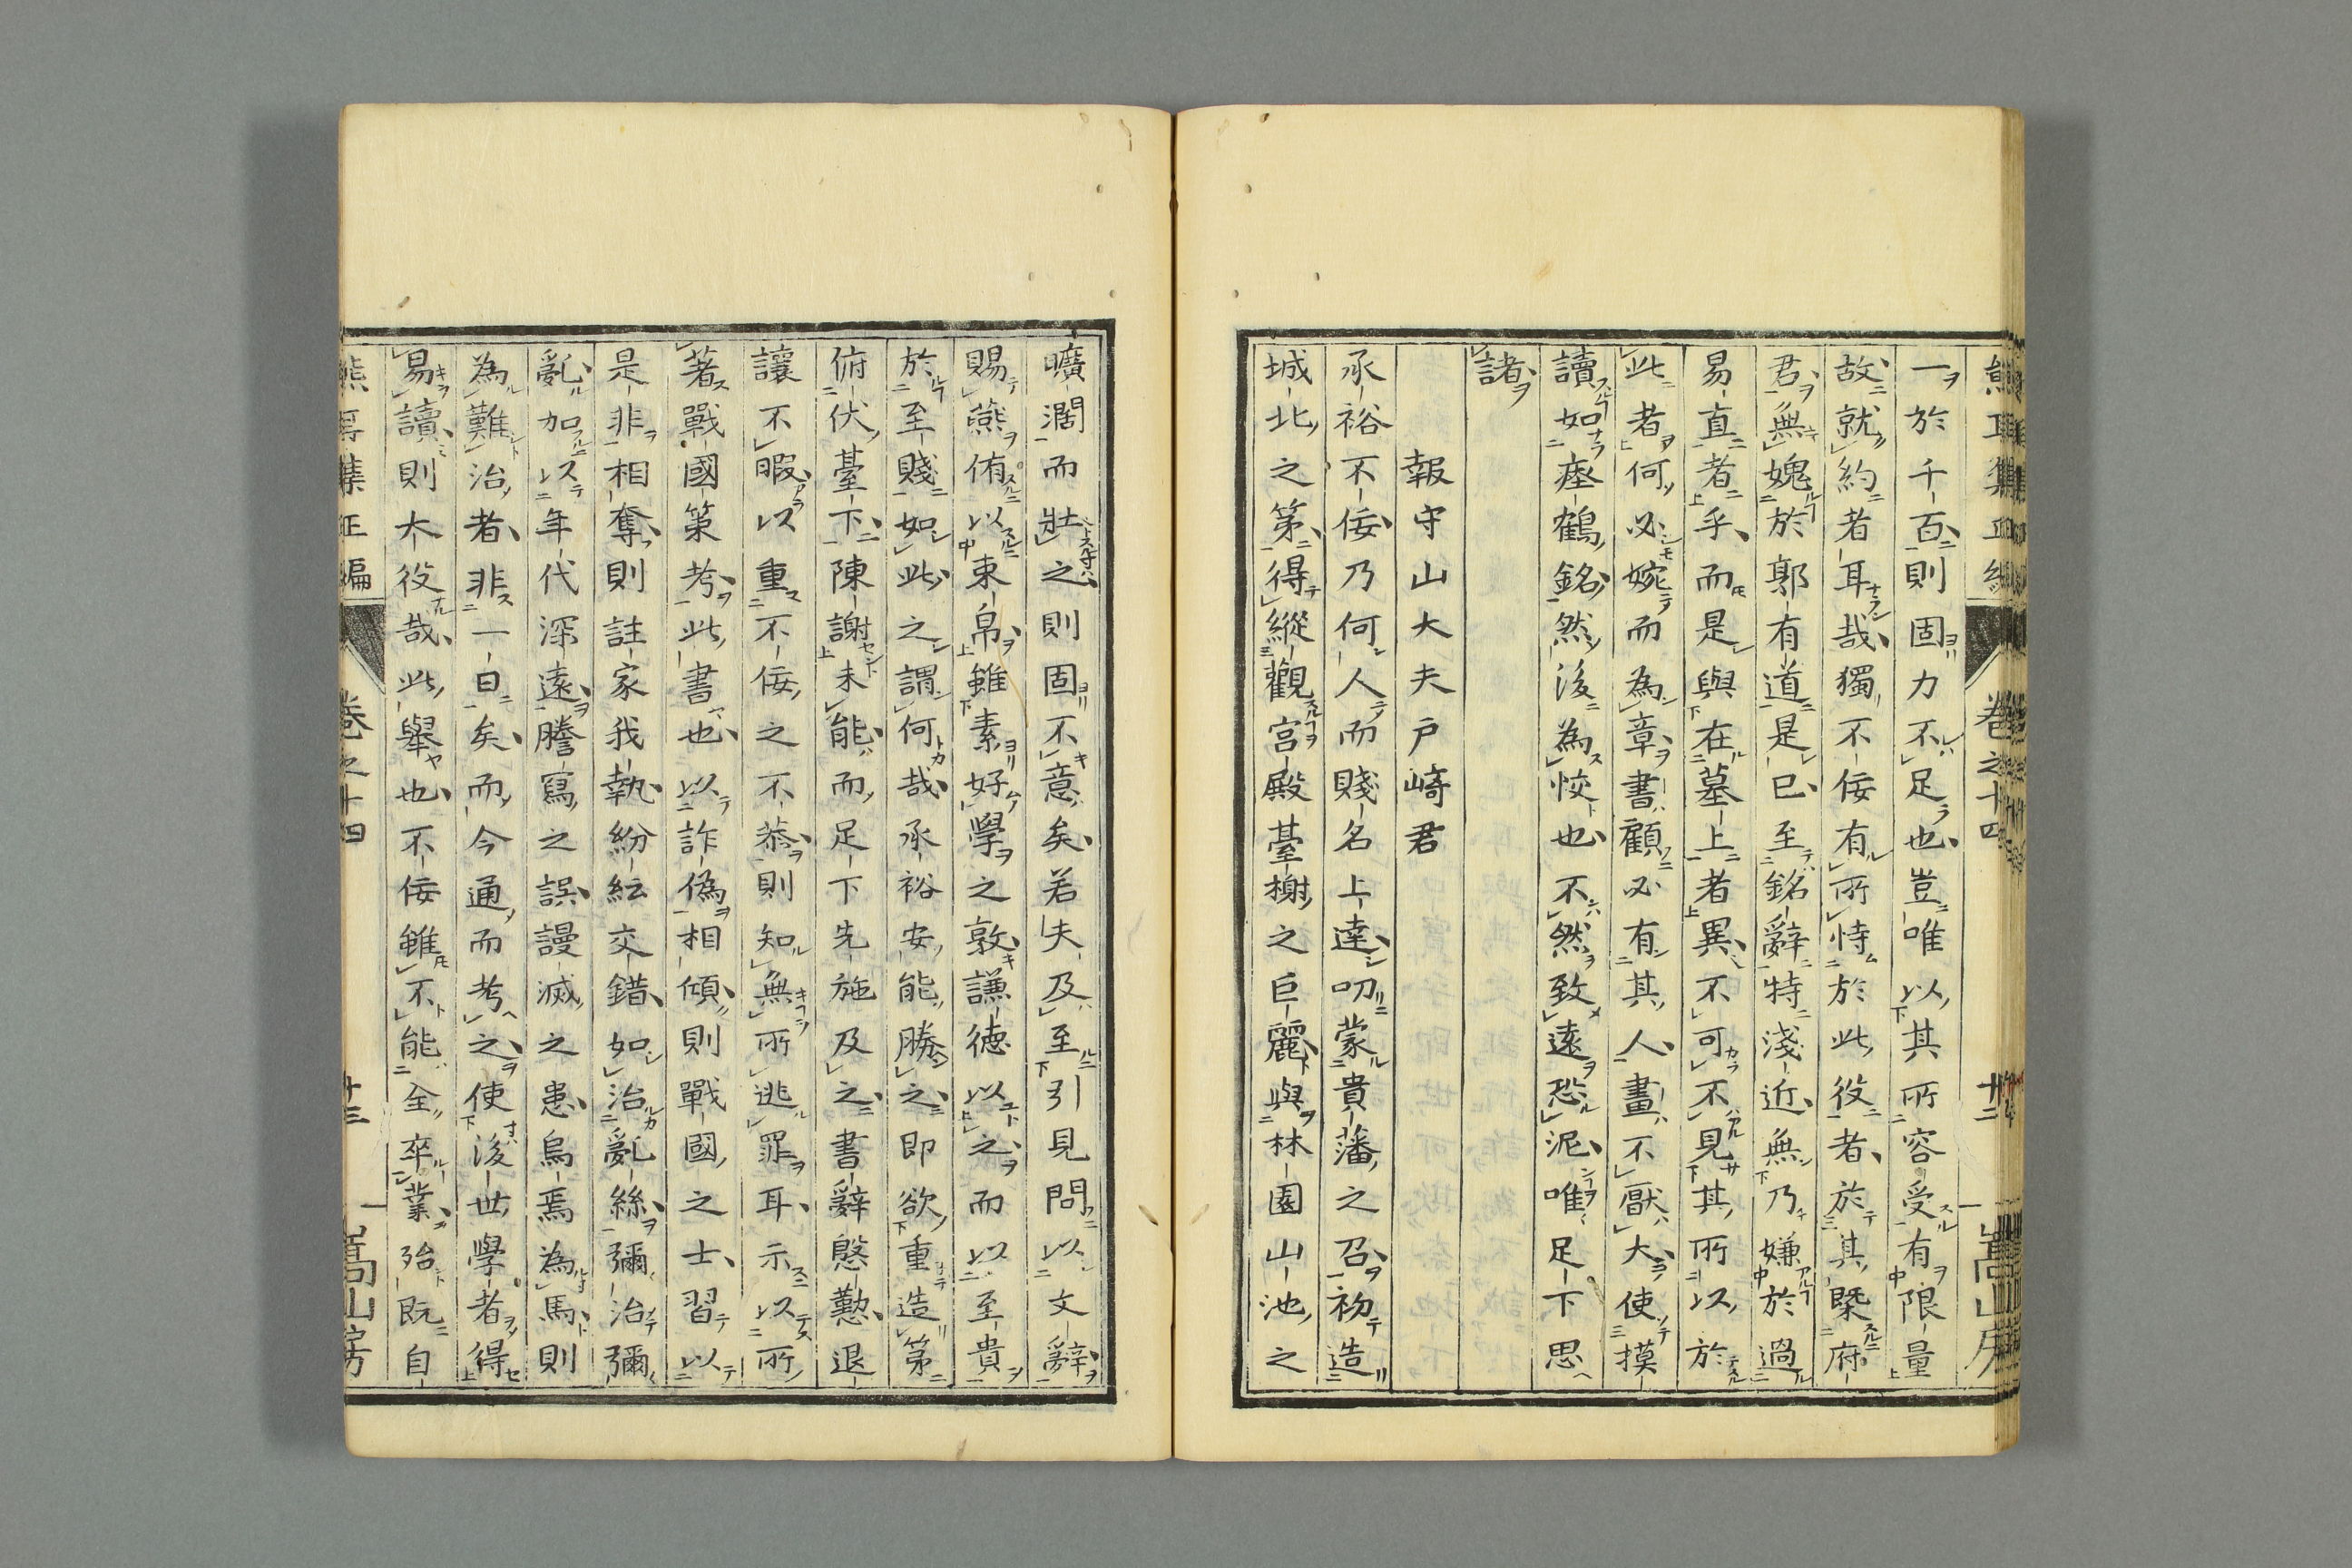 一於千百則固力不足也豈唯以其所容受有限量
故就約者耳哉獨不佞有所恃於此役者於其槩府
君無媿於郭有道是已至銘辭特淺近無乃嫌於過
易直者乎而是與在墓上者異不可不見其所以於
此者何必婉而為章書顧必有其人畫不厭大使摸
讀如瘞鶴銘然後為恔也不然致遠恐泥唯足下思
諸
報守山大夫戸崎君
承裕不佞乃何人而賤名上達叨蒙貴藩之召初造
城北之第得縱觀宮殿臺榭之巨麗與林園山池之
曠濶而壯之則固不意矣若夫及至引見問以文辭
賜燕侑以束帛雖素好學之敦謙德以之而以至貴
於至賤如此之謂何哉承裕安能勝之即欲重造第
俯伏臺下陳謝未能而足下先施及之書辭慇懃退
讓不暇以重不佞之不恭則知無所逃罪耳示以所
著戰國策考此書也以詐偽相傾則戰國之士習以
是非相奪則註家我執紛紜交錯如治亂絲彌治彌
亂加以年代深遠謄寫之誤謾滅之患烏焉為馬則
為難治者非一日矣而今通而考之使後世學者得
易讀則大役哉此舉也不佞雖不能全卒業殆既自
熊耳集正編 卷之十四 十三 嵩山房